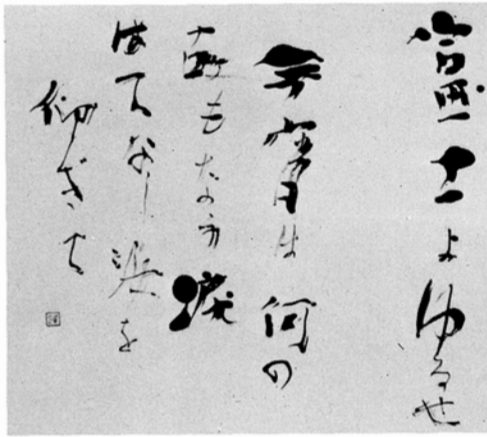 富士よゆるせ
今宵は何の
故もなう涙
はてなし汝を
仰ぎて